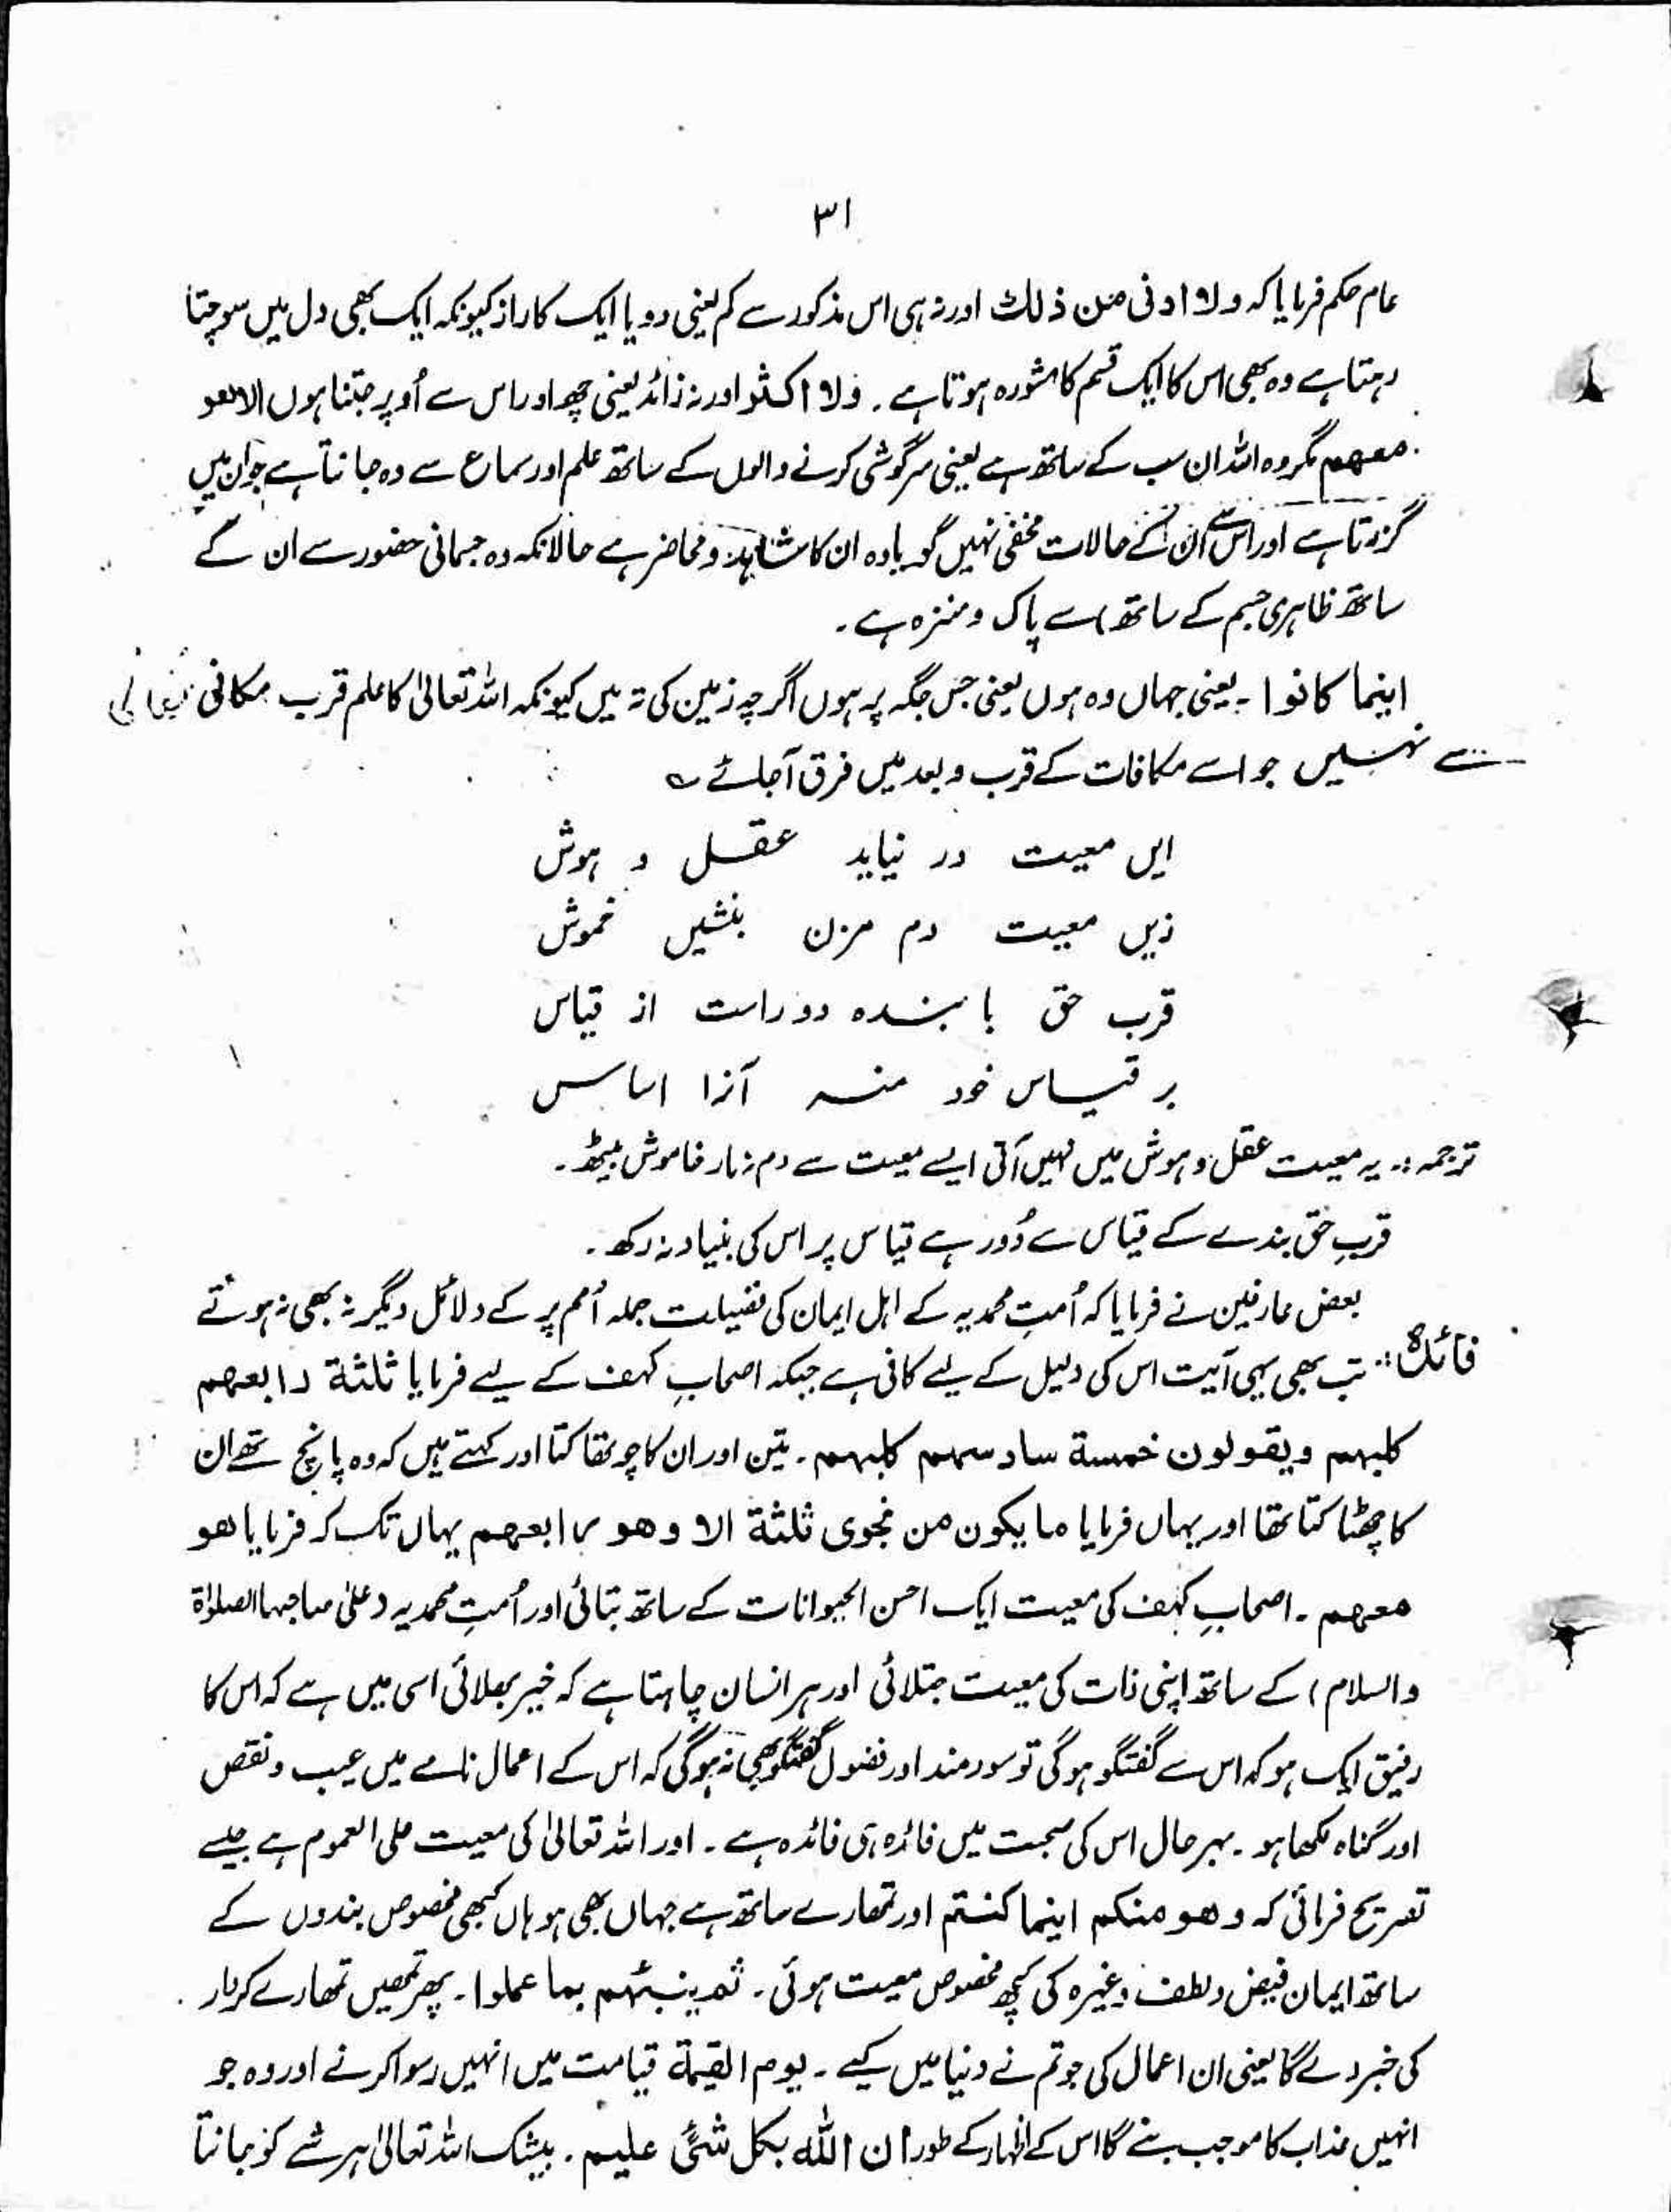 ۳۱
عام حکم فرمایا کہ ولا ادنی من ذلك اور نہ ہی اس مذکور سے کم یعنی دو یا ایک کا راز کیونکہ ایک بھی دل میں سوچتا
رہتا ہے وہ بھی اس کا ایک قسم کا مشورہ ہوتا ہے۔ ولا اکثر اور نہ زائد یعنی چھ اور اس سے اُوپر جتنا ہوں الا ھو
معھم مگر وہ اللہ ان سب کے ساتھ ہے یعنی سرگوشی کرنے والوں کے ساتھ علم اور سماع سے وہ جانتا ہے جو ان میں
گزرتا ہے اور اس سے ان کے حالات مخفی نہیں گویا وہ ان کا مشاہد و محاضر ہے حالانکہ وہ جسمانی حضور سے ان کے
ساتھ ظاہری جسم کے ساتھ) سے پاک و منزہ ہے۔
اینما کانوا۔ یعنی جہاں وہ ہوں یعنی جس جگہ پر ہوں اگرچہ زمین کی تہ میں کیونکہ اللہ تعالیٰ کا علم قرب مکانی
سے نہیں جو اسے مکانات کے قرب و بعد میں فرق آجائے ؎
ایں معیت در نیاید عقل و ہوش
زیں معیت دم مزن بنشیں خموش
قرب حق با بندہ دور است از قیاس
بر قیاس خود منہ آنرا اساس
ترجمہ :۔ یہ معیت عقل و ہوش میں نہیں آتی ایسے معیت سے دم نہ مار خاموش بیٹھ۔
قربِ حق بندے کے قیاس سے دُور ہے قیاس پر اس کی بنیاد نہ رکھ۔
بعض عارفین نے فرمایا کہ اُمتِ محمدیہ کے اہل ایمان کی فضیلت جملہ اُمم پر کے دلائل دیگر نہ بھی نہ ہوتے
فائدہ :۔ تب بھی یہی آیت اس کی دلیل کے لیے کافی ہے جبکہ اصحابِ کہف کے لیے فرمایا ثلثة رابعھم
کلبہم ویقولون خمسة سادسہم کلبہم۔ تین اور ان کا چوتھا کتا اور کہتے ہیں کہ وہ پانچ تھے ان
کا چھٹا کتا تھا اور یہاں فرمایا ما یکون من نجوی ثلثة الا وھو رابعھم یہاں تک کہ فرمایا ھو
معھم۔ اصحابِ کہف کی معیت ایک احسن الحیوانات کے ساتھ بتائی اور اُمتِ محمدیہ (علیٰ صاحبہا الصلوٰۃ
والسلام) کے ساتھ اپنی ذات کی معیت جتلائی اور ہر انسان چاہتا ہے کہ خیر بھلائی اسی میں ہے کہ اس کا
رفیق ایک ہو کہ اس سے گفتگو ہوگی تو سودمند اور فضول گفتگو بھی نہ ہوگی کہ اس کے اعمال نامے میں عیب و نقص
اور گناہ لکھا ہو۔ بہرحال اس کی صحبت میں فائدہ ہی فائدہ ہے۔ اور اللہ تعالیٰ کی معیت علی العموم ہے جیسے
تصریح فرمائی کہ وھو منکم اینما کنتم اور تمھارے ساتھ ہے جہاں بھی ہو ہاں کبھی مخصوص بندوں کے
ساتھ ایمان فیض و لطف وغیرہ کی کچھ مخصوص معیت ہوئی۔ ثم ینبئہم بما عملوا۔ پھر تمھیں تمھارے کردار
کی خبر دے گا یعنی ان اعمال کی جو تم نے دنیا میں کیے۔ یوم القیمة قیامت میں انہیں رسوا کرنے اور وہ جو
انہیں عذاب کا موجب بنے گا اس کے اظہار کے طور ان اللہ بکل شئ علیم۔ بیشک اللہ تعالیٰ ہر شے کو جانتا